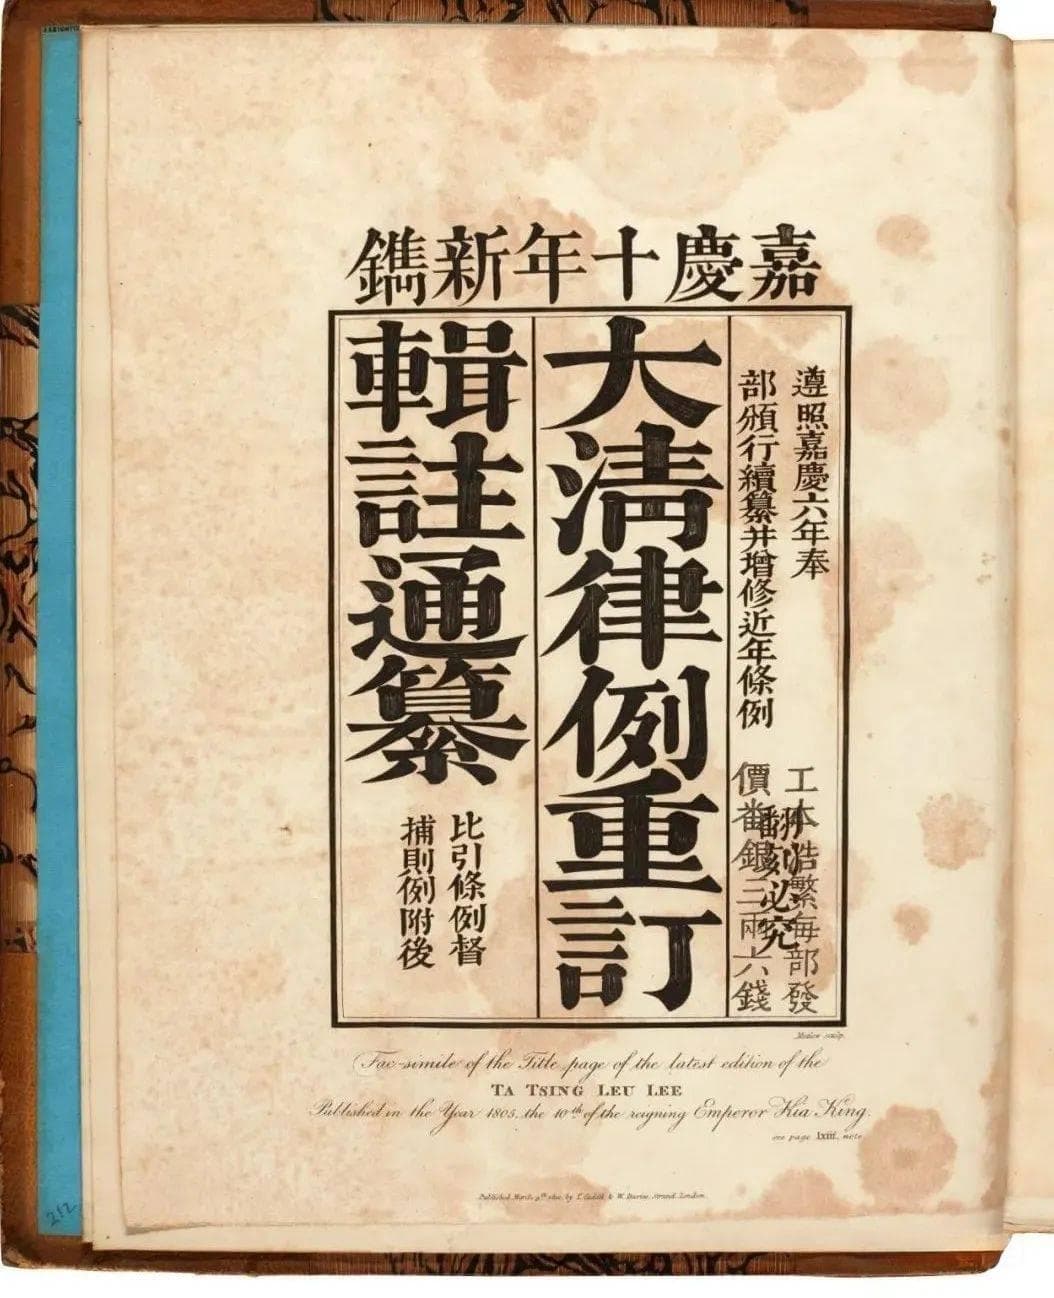 嘉慶十年新鐫
遵照嘉慶六年奉
部頒行續纂并增修近年條例
工本浩繁每部發
價番銀三兩六錢
翻刻必究
大清律例重訂
輯註通纂
比引條例督
捕則例附後
Fac-simile of the Title page of the latest edition of the
TA TSING LEU LEE
Published in the Year 1805, the 10th of the reigning Emperor Kia King.
see page lxiii, note
Published March, 9th 1810, by T. Cadell & W. Davies, Strand, London.
212